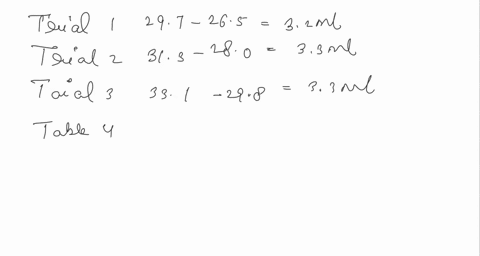 Trial 1 29.7 - 26.5 = 3.2ml
Trial 2 31.3 - 28.0 = 3.3ml
Trial 3 33.1 - 29.8 = 3.3ml
Table 4